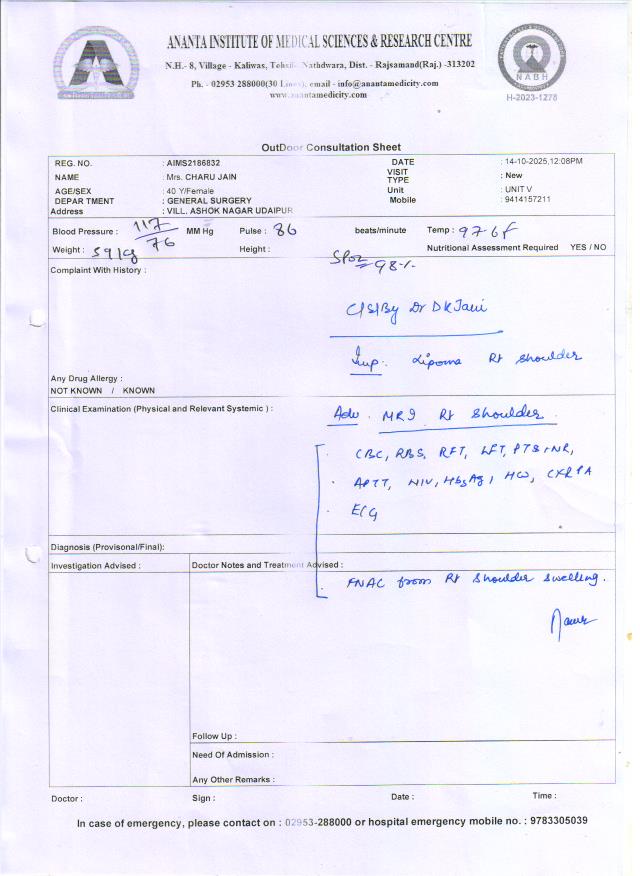 ANANTA INSTITUTE OF MEDICAL SCIENCES & RESEARCH CENTRE
N.H.- 8, Village - Kaliwas, Tehsil- Nathdwara, Dist. - Rajsamand(Raj.) -313202
Ph. - 02953 288000(30 Lines), email - info@anantamedicity.com
www.anantamedicity.com
NABH
H-2023-1278
OutDoor Consultation Sheet
REG. NO. : AIMS2186832 DATE : 14-10-2025,12:08PM
NAME : Mrs. CHARU JAIN VISIT TYPE : New
AGE/SEX : 40 Y/Female Unit : UNIT V
DEPARTMENT : GENERAL SURGERY Mobile : 9414157211
Address : VILL. ASHOK NAGAR UDAIPUR
Blood Pressure : 117/76 MM Hg Pulse : 86 beats/minute Temp : 97.6f
Weight : 59kg Height : Nutritional Assessment Required YES / NO
SPO2 98%
Complaint With History :
C/S/By Dr DK Jain
Imp:. Lipoma Rt Shoulder
Any Drug Allergy :
NOT KNOWN / KNOWN
Clinical Examination (Physical and Relevant Systemic ) :
Adv. MRI Rt Shoulder.
CBC, RBS, RFT, LFT, PTINR,
APTT, HIV, HbsAg, HCV, CXR PA
ECG
Diagnosis (Provisonal/Final):
Investigation Advised : Doctor Notes and Treatment Advised :
FNAC from Rt Shoulder swelling.
Follow Up :
Need Of Admission :
Any Other Remarks :
Doctor : Sign : Date : Time :
In case of emergency, please contact on : 02953-288000 or hospital emergency mobile no. : 9783305039